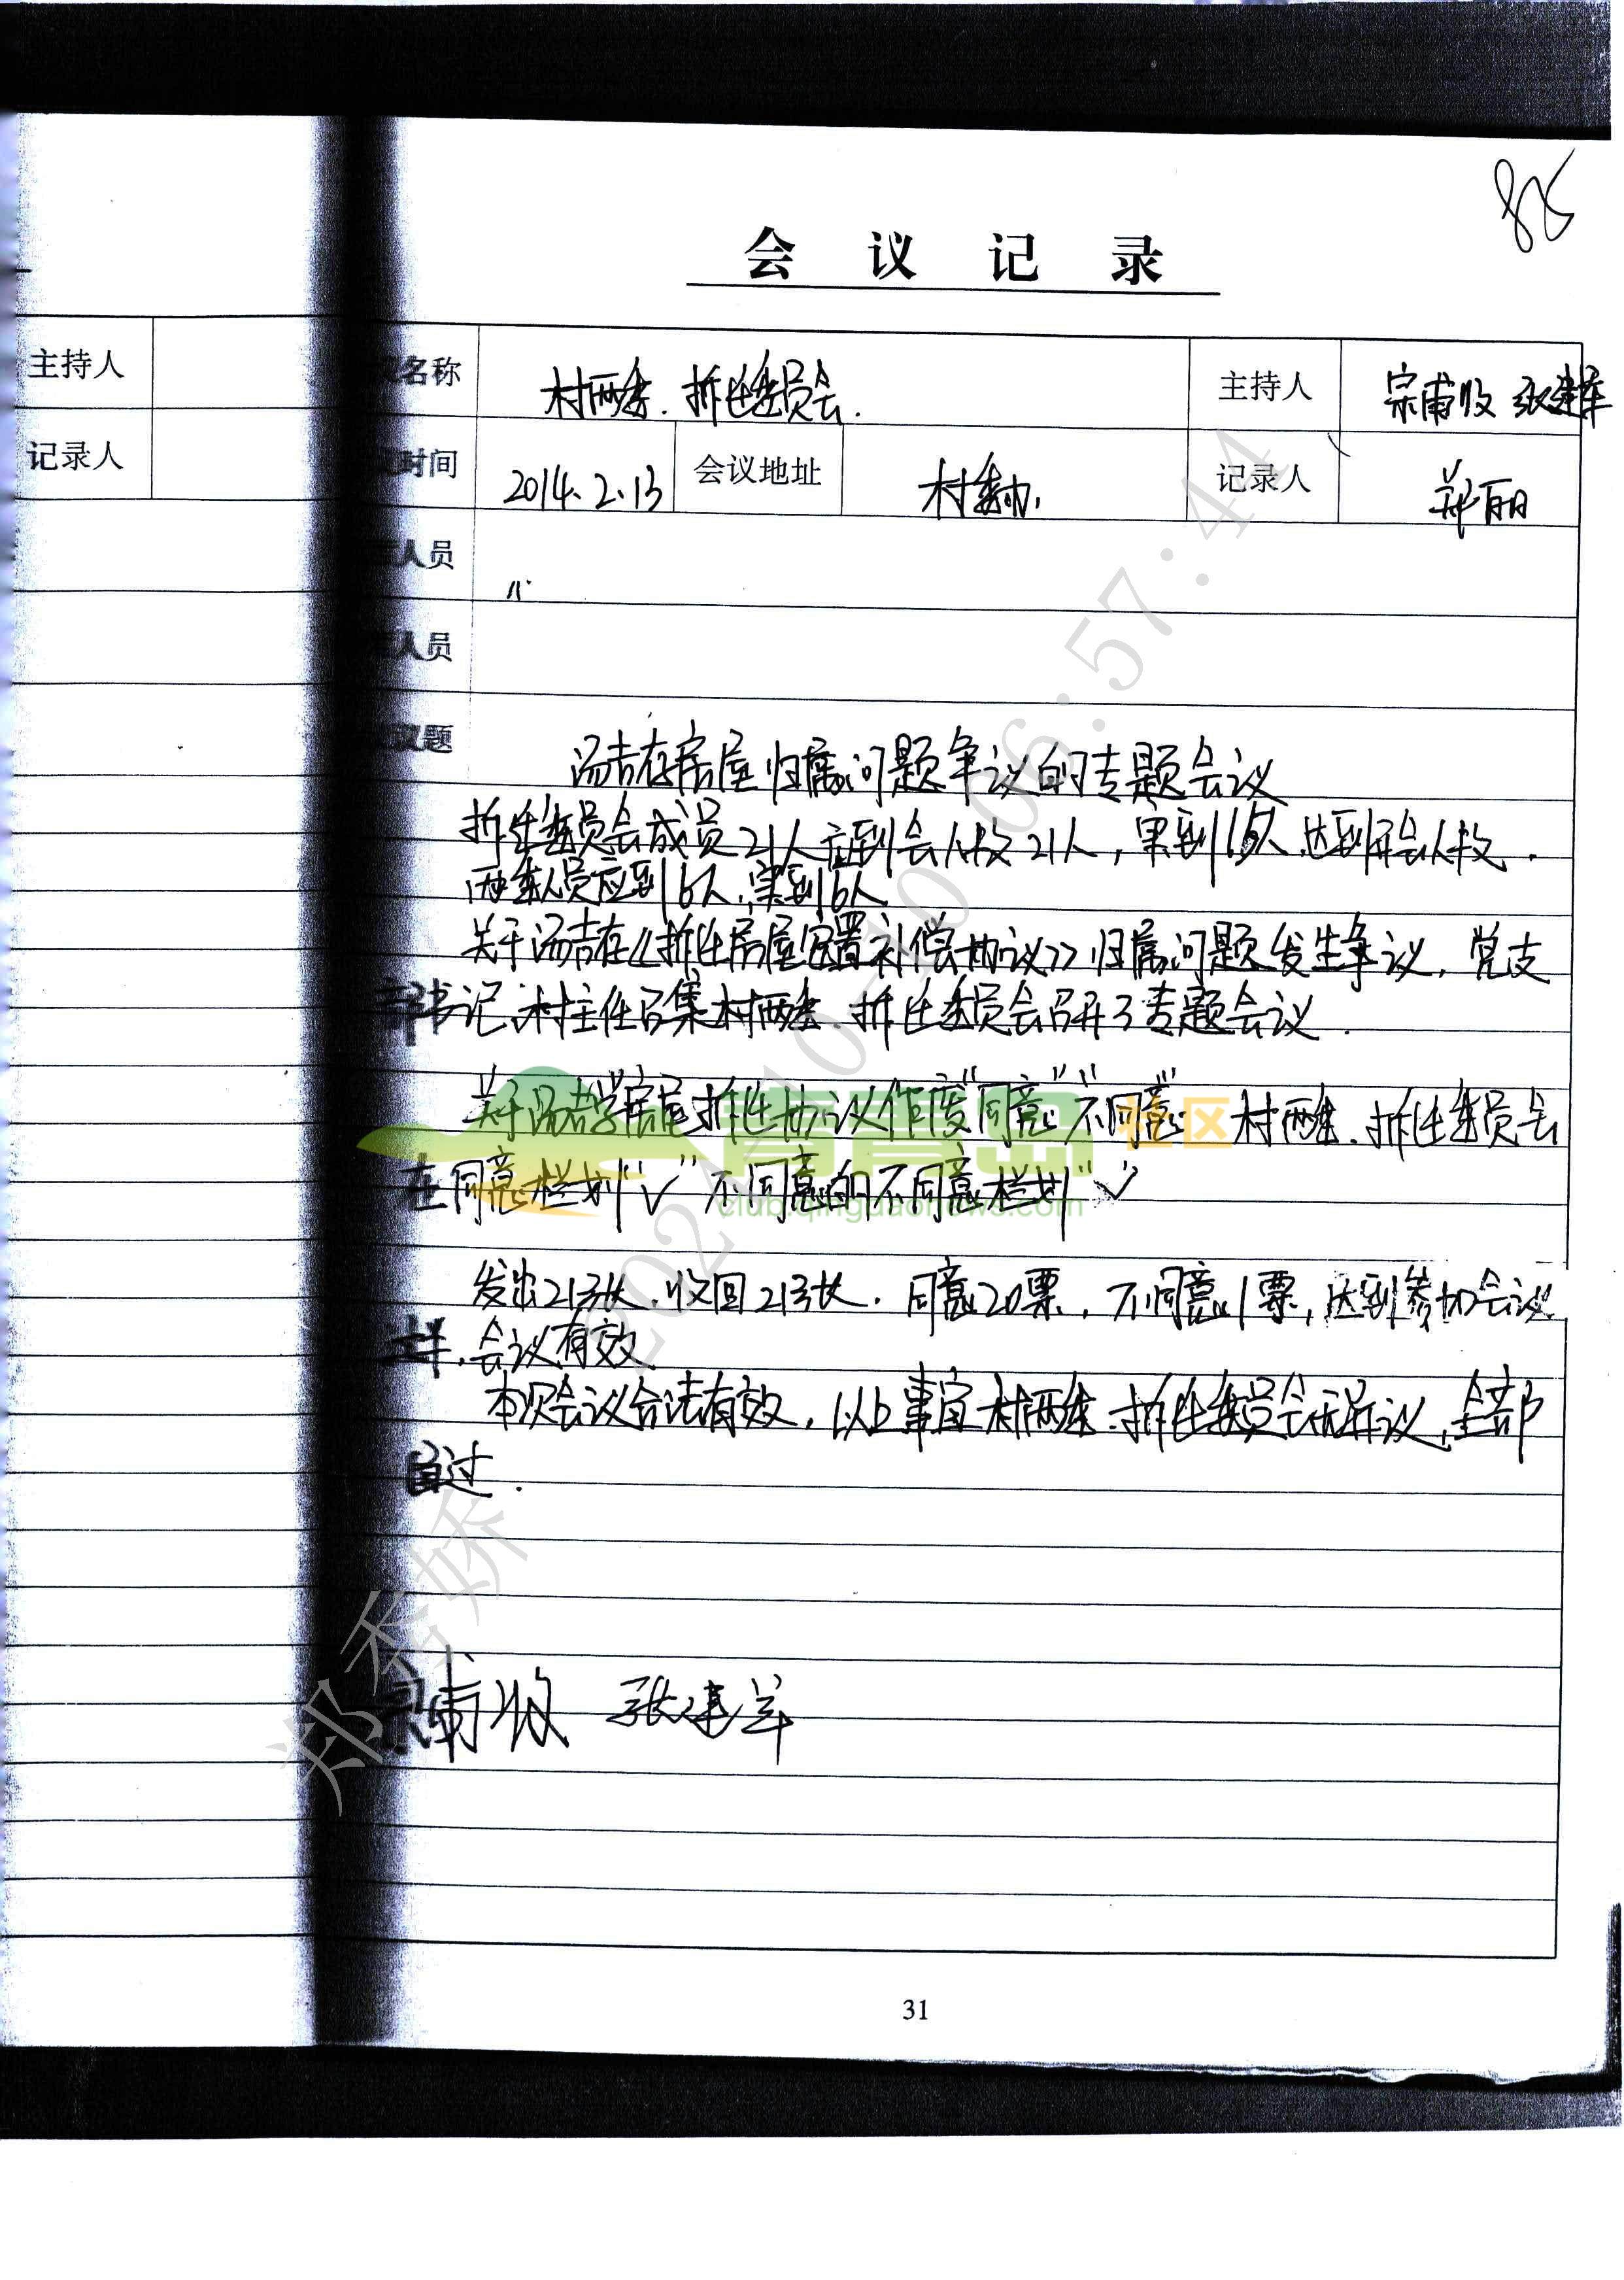 85
会 议 记 录
主持人
名称 村两委、拆迁委员会. 主持人 宗甫收 张建军
记录人
时间 2014.2.13 会议地址 村委办 记录人 郑丽
人员 〃
人员
议题
汤吉存房屋归属问题争议的专题会议
拆迁委员会成员21人应到会人数21人，实到15人，达到开会人数.
两委人员应到6人，实到6人
关于汤吉存《拆迁房屋安置补偿协议》归属问题发生争议，党支
部书记、村主任召集村两委、拆迁委员会召开了专题会议.
关于汤吉学房屋拆迁协议作废"同意""不同意" 村两委、拆迁委员会
在同意栏划"√" 不同意的不同意栏划"√"
发出21张，收回21张. 同意20票，不同意1票，达到参加会议
半，会议有效
本次会议合法有效，以上事宜村两委、拆迁委员会无异议，全部
通过.
宗甫收 张建军
31
青青岛 社区
club.qingdaonews.com
郑秀娇 2024-10-10 06:57:44